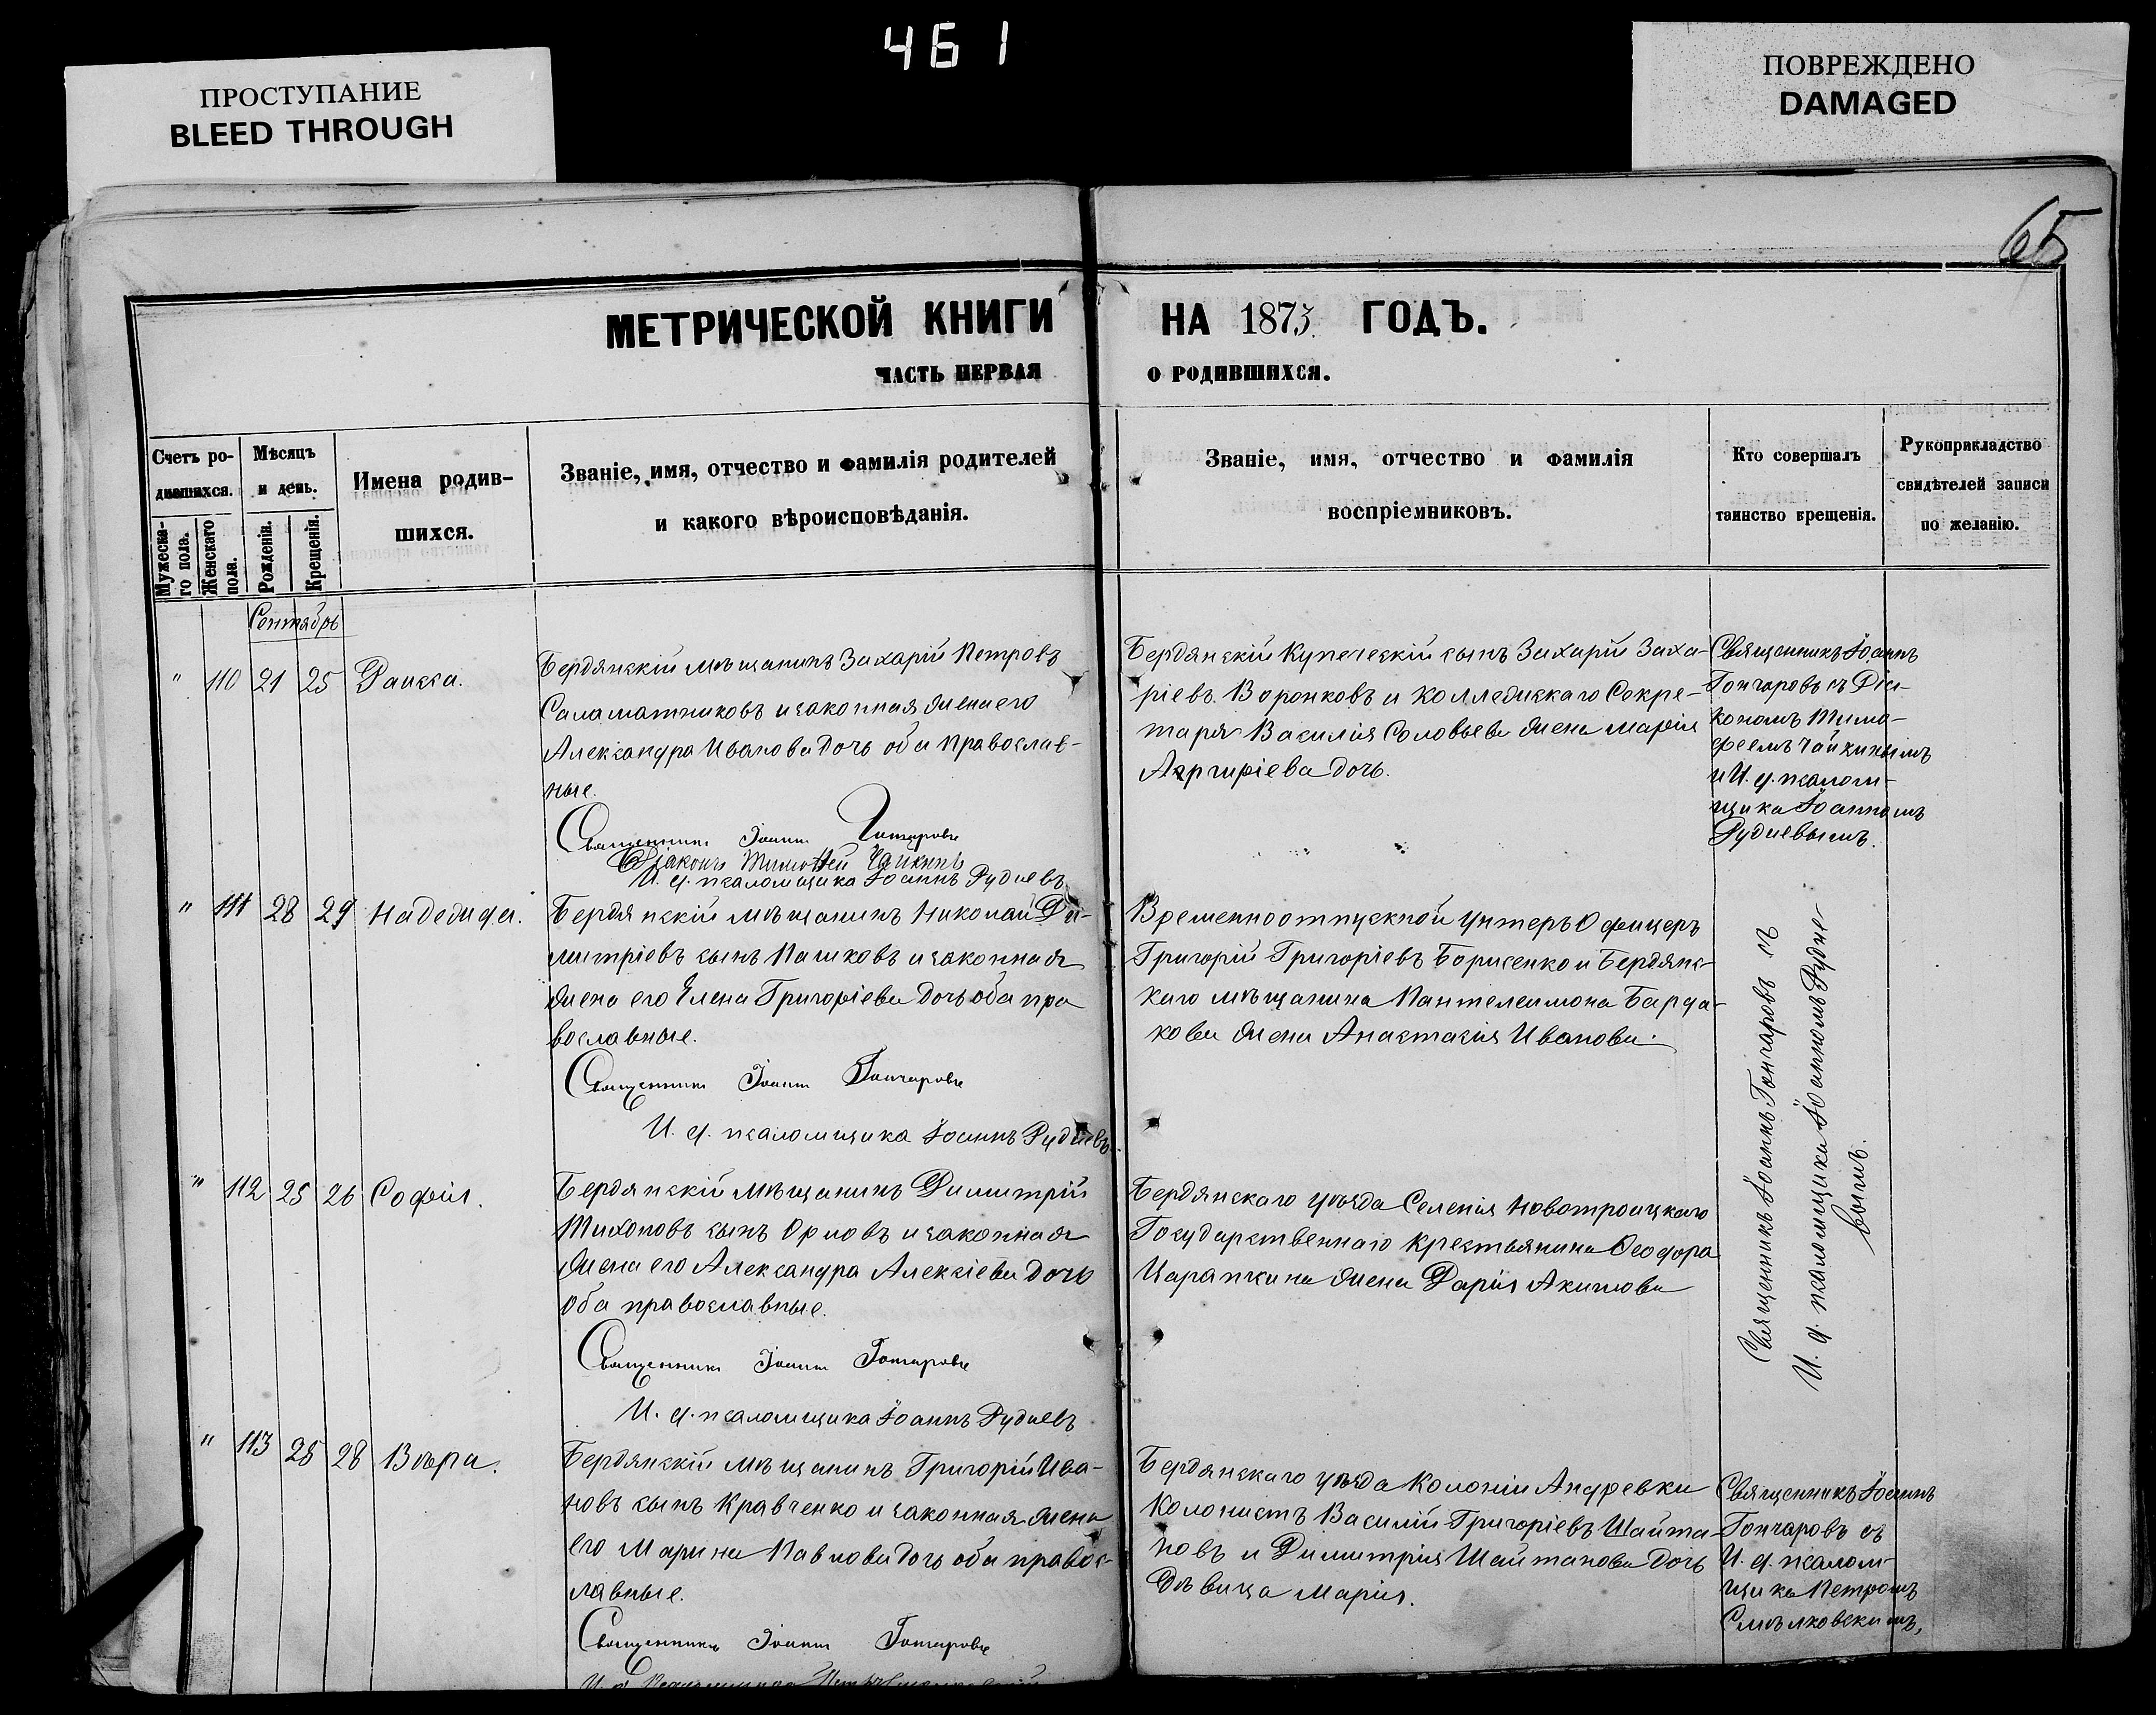 461
ПРОСТУПАНИЕ
BLEED THROUGH
ПОВРЕЖДЕНО
DAMAGED
65
МЕТРИЧЕСКОЙ КНИГИ НА 1873 ГОДЪ.
ЧАСТЬ ПЕРВАЯ О РОДИВШИХСЯ.
Счетъ ро-
дившихся.
Мужеска-
го пола.
Женскаго
пола.
Мѣсяцъ
и день.
Рожденія.
Крещенія.
Имена родив-
шихся.
Званіе, имя, отчество и фамилія родителей
и какого вѣроисповѣданія.
Званіе, имя, отчество и фамилія
воспріемниковъ.
Кто совершалъ
таинство крещенія.
Рукоприкладство
свидѣтелей записи
по желанію.
Сентябрь
" 110 21 25 Раисса.
Бердянскій мѣщанинъ Захарій Петровъ
Саламатниковъ и законная жена его
Александра Иванова дочь оба православ-
ные.
Священникъ Іоаннъ Гончаровъ
Діаконъ Тимоѳей Чайкинъ
И. д. псаломщика Іоаннъ Рудневъ
Бердянскій Купеческій сынъ Захарій Заха-
ріевъ Воронковъ и Коллежскаго Секре-
таря Василія Соловьева жена Марія
Аргиріева дочь.
Священникъ Іоаннъ
Гончаровъ съ Діа-
кономъ Тимо-
феемъ Чайкинымъ
и И. д. псалом-
щика Іоанномъ
Рудневымъ.
" 111 28 29 Надежда.
Бердянскій мѣщанинъ Николай Ди-
митріевъ сынъ Пашковъ и законная
жена его Елена Григоріева дочь оба пра
вославные.
Священникъ Іоаннъ Гончаровъ
И. д. псаломщика Іоаннъ Рудневъ.
Временноотпускной унтеръ Офицеръ
Григорій Григоріевъ Борисенко и Бердянс-
каго мѣщанина Пантелеимона Барда-
кова жена Анастасія Иванова.
Священникъ Іоаннъ Гончаровъ съ
И. д. псаломщика Іоанномъ Рудне-
вымъ.
" 112 25 26 Софія.
Бердянскій мѣщанинъ Димитрій
Тихоновъ сынъ Орловъ и законная
жена его Александра Алексіева дочь
оба православные.
Священникъ Іоаннъ Гончаровъ
И. д. псаломщика Іоаннъ Рудневъ
Бердянскаго уѣзда Селенія Новотроицкаго
Государственнаго крестьянина Ѳеодора
Царапкина жена Дарія Акимова
" 113 25 28 Вѣра.
Бердянскій мѣщанинъ Григорій Ива-
новъ сынъ Кравченко и законная жена
его Марина Павлова дочь оба правос-
лавные.
Священникъ Іоаннъ Гончаровъ
Бердянскаго уѣзда Колоніи Андревки
Колонистъ Василій Григоріевъ Шайта-
новъ и Димитрія Шайтанова дочь
Дѣвица Марія.
Священникъ Іоаннъ
Гончаровъ съ
И. д. псалом-
щика Петромъ
Смѣлковскимъ,